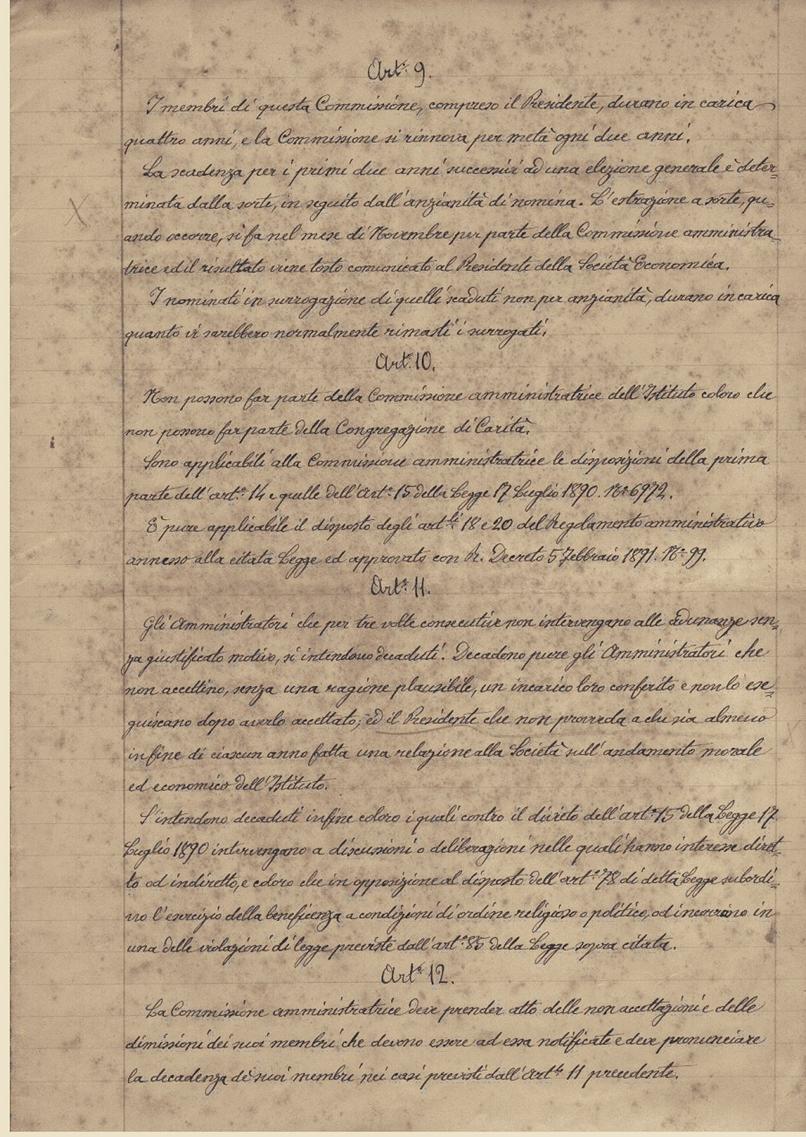 Art.° 9.
I membri di questa Commissione, compreso il Presidente, durano in carica
quattro anni, e la Commissione si rinnova per metà ogni due anni.
La scadenza per i primi due anni successivi ad una elezione generale è deter=
minata dalla sorte, in seguito dall'anzianità di nomina. L'estrazione a sorte, qu=
ando occorre, si fa nel mese di Novembre per parte della Commissione amministra=
trice ed il risultato viene tosto comunicato al Presidente della Società Economica.
I nominati in surrogazione di quelli scaduti non per anzianità, durano in carica
quanto vi sarebbero normalmente rimasti i surrogati.
Art.° 10.
Non possono far parte della Commissione amministratrice dell'Istituto coloro che
non possono far parte della Congregazione di Carità.
Sono applicabili alla Commissione amministratrice le disposizioni della prima
parte dell'art.° 14 e quelle dell'Art.° 15 della Legge 17 Luglio 1890. N.° 6972.
È pure applicabile il disposto degli art.li 18 e 20 del Regolamento amministrativo
annesso alla citata Legge ed approvato con R. Decreto 5 Febbraio 1891. N.° 99.
Art.° 11.
Gli Amministratori che per tre volte consecutive non intervengano alle adunanze sen=
za giustificato motivo, si intendono decaduti. Decadono pure gli Amministratori che
non accettino, senza una ragione plausibile, un incarico loro conferito e non lo ese=
guiscano dopo averlo accettato; ed il Presidente che non provveda a che sia almeno
in fine di ciascun anno fatta una relazione alla Società sull'andamento morale
ed economico dell'Istituto.
S'intendono decaduti infine coloro i quali contro il divieto dell'art.° 15 della Legge 17
Luglio 1890 intervengano a discussioni o deliberazioni nelle quali hanno interesse diret=
to od indiretto, e coloro che in opposizione al disposto dell'art.° 78 di detta Legge subordi=
no l'esercizio della beneficenza a condizioni di ordine religioso o politico, od incorrino in
una delle violazioni di legge previste dall'art.° 85 della Legge sopra citata.
Art.° 12.
La Commissione amministratrice deve prender atto delle non accettazioni e delle
dimissioni dei suoi membri che devono essere ad essa notificate e deve pronunciare
la decadenza de suoi membri nei casi previsti dall'Art.° 11 precedente.